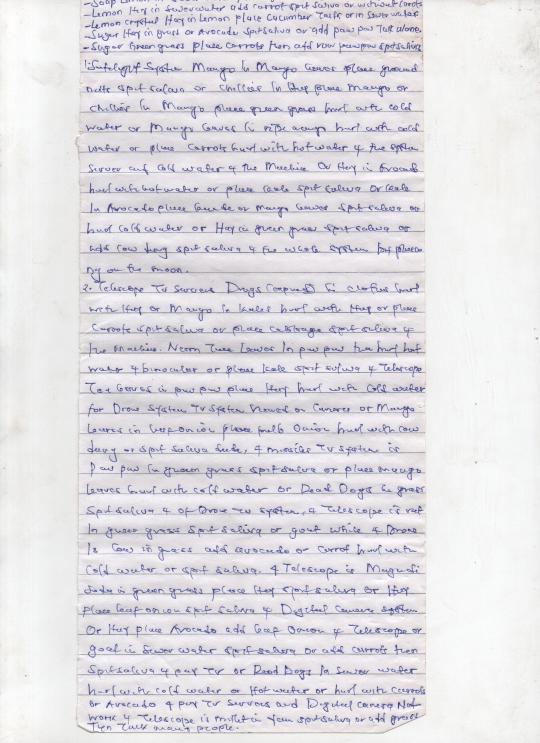 -Soap Lemon
-Lemon Hay in Sewer water add carrot spit saliva or without carrots
-Lemon crystal Hay in Lemon place Cucumber Talk or in Sewer water.
-Sugar Hay in grass or Avocado Spit saliva or add paw paw Talk alone.
-Sugar Green grass place carrots then add raw pawpaw spit saliva
1. System Mango in Mango Leaves place ground
nuts spit saliva or chillies in Hay place Mango or
chillies in Mango place green grass hurl with cold
water or Mango Leaves in ripe mango hurl with cold
water or place carrots hurl with hot water & the system
Server and cold water & the Machine Or Hay in Avocado
hurl with hot water or place kale spit saliva Or kale
In Avocado place or mango Leaves spit saliva or
hurl cold water or Hay in green grass spit saliva or
add cow dung spit saliva & the whole system but
on the moon.
2. Telescope TV Services Drugs in clothes hurl
with Hay or Mango in kales hurl with Hay or place
Carrots spit saliva or place cabbage spit saliva &
the Machine. Neem Tree Leaves In paw paw then hurl hot
water & binocular or place kale spit saliva & Telescope
Tea Leaves in paw paw place Hay hurl with Cold water
for Drone System TV System viewed on Cameras or Mango
Leaves in Leaf onion place bulb Onion hurl with cow
dung or spit saliva, & missiles TV System is
Paw paw in green grass spit saliva or place mango
Leaves hurl with cold water Or Dead Dogs in grass
Spit saliva & of Drone TV System, & Telescope is rat
In green grass spit saliva or goat while & Drone
Is Cow in grass add avocado or carrot hurl with
cold water or spit saliva. & Telescope is
in green grass place Hay spit saliva Or Hay
place Leaf onion spit saliva & Digital Camera System
Or Hay place Avocado add Leaf Onion & Telescope or
goat in Sewer water spit saliva Or add carrots then
Spit saliva & pay TV or Dead Dogs In Sewer water
hurl with cold water or Hot water or hurl with carrots
or Avocado & pay TV Services and Digital camera Not
work & Telescope is millet in spit saliva or add grass
Then Talk many people...